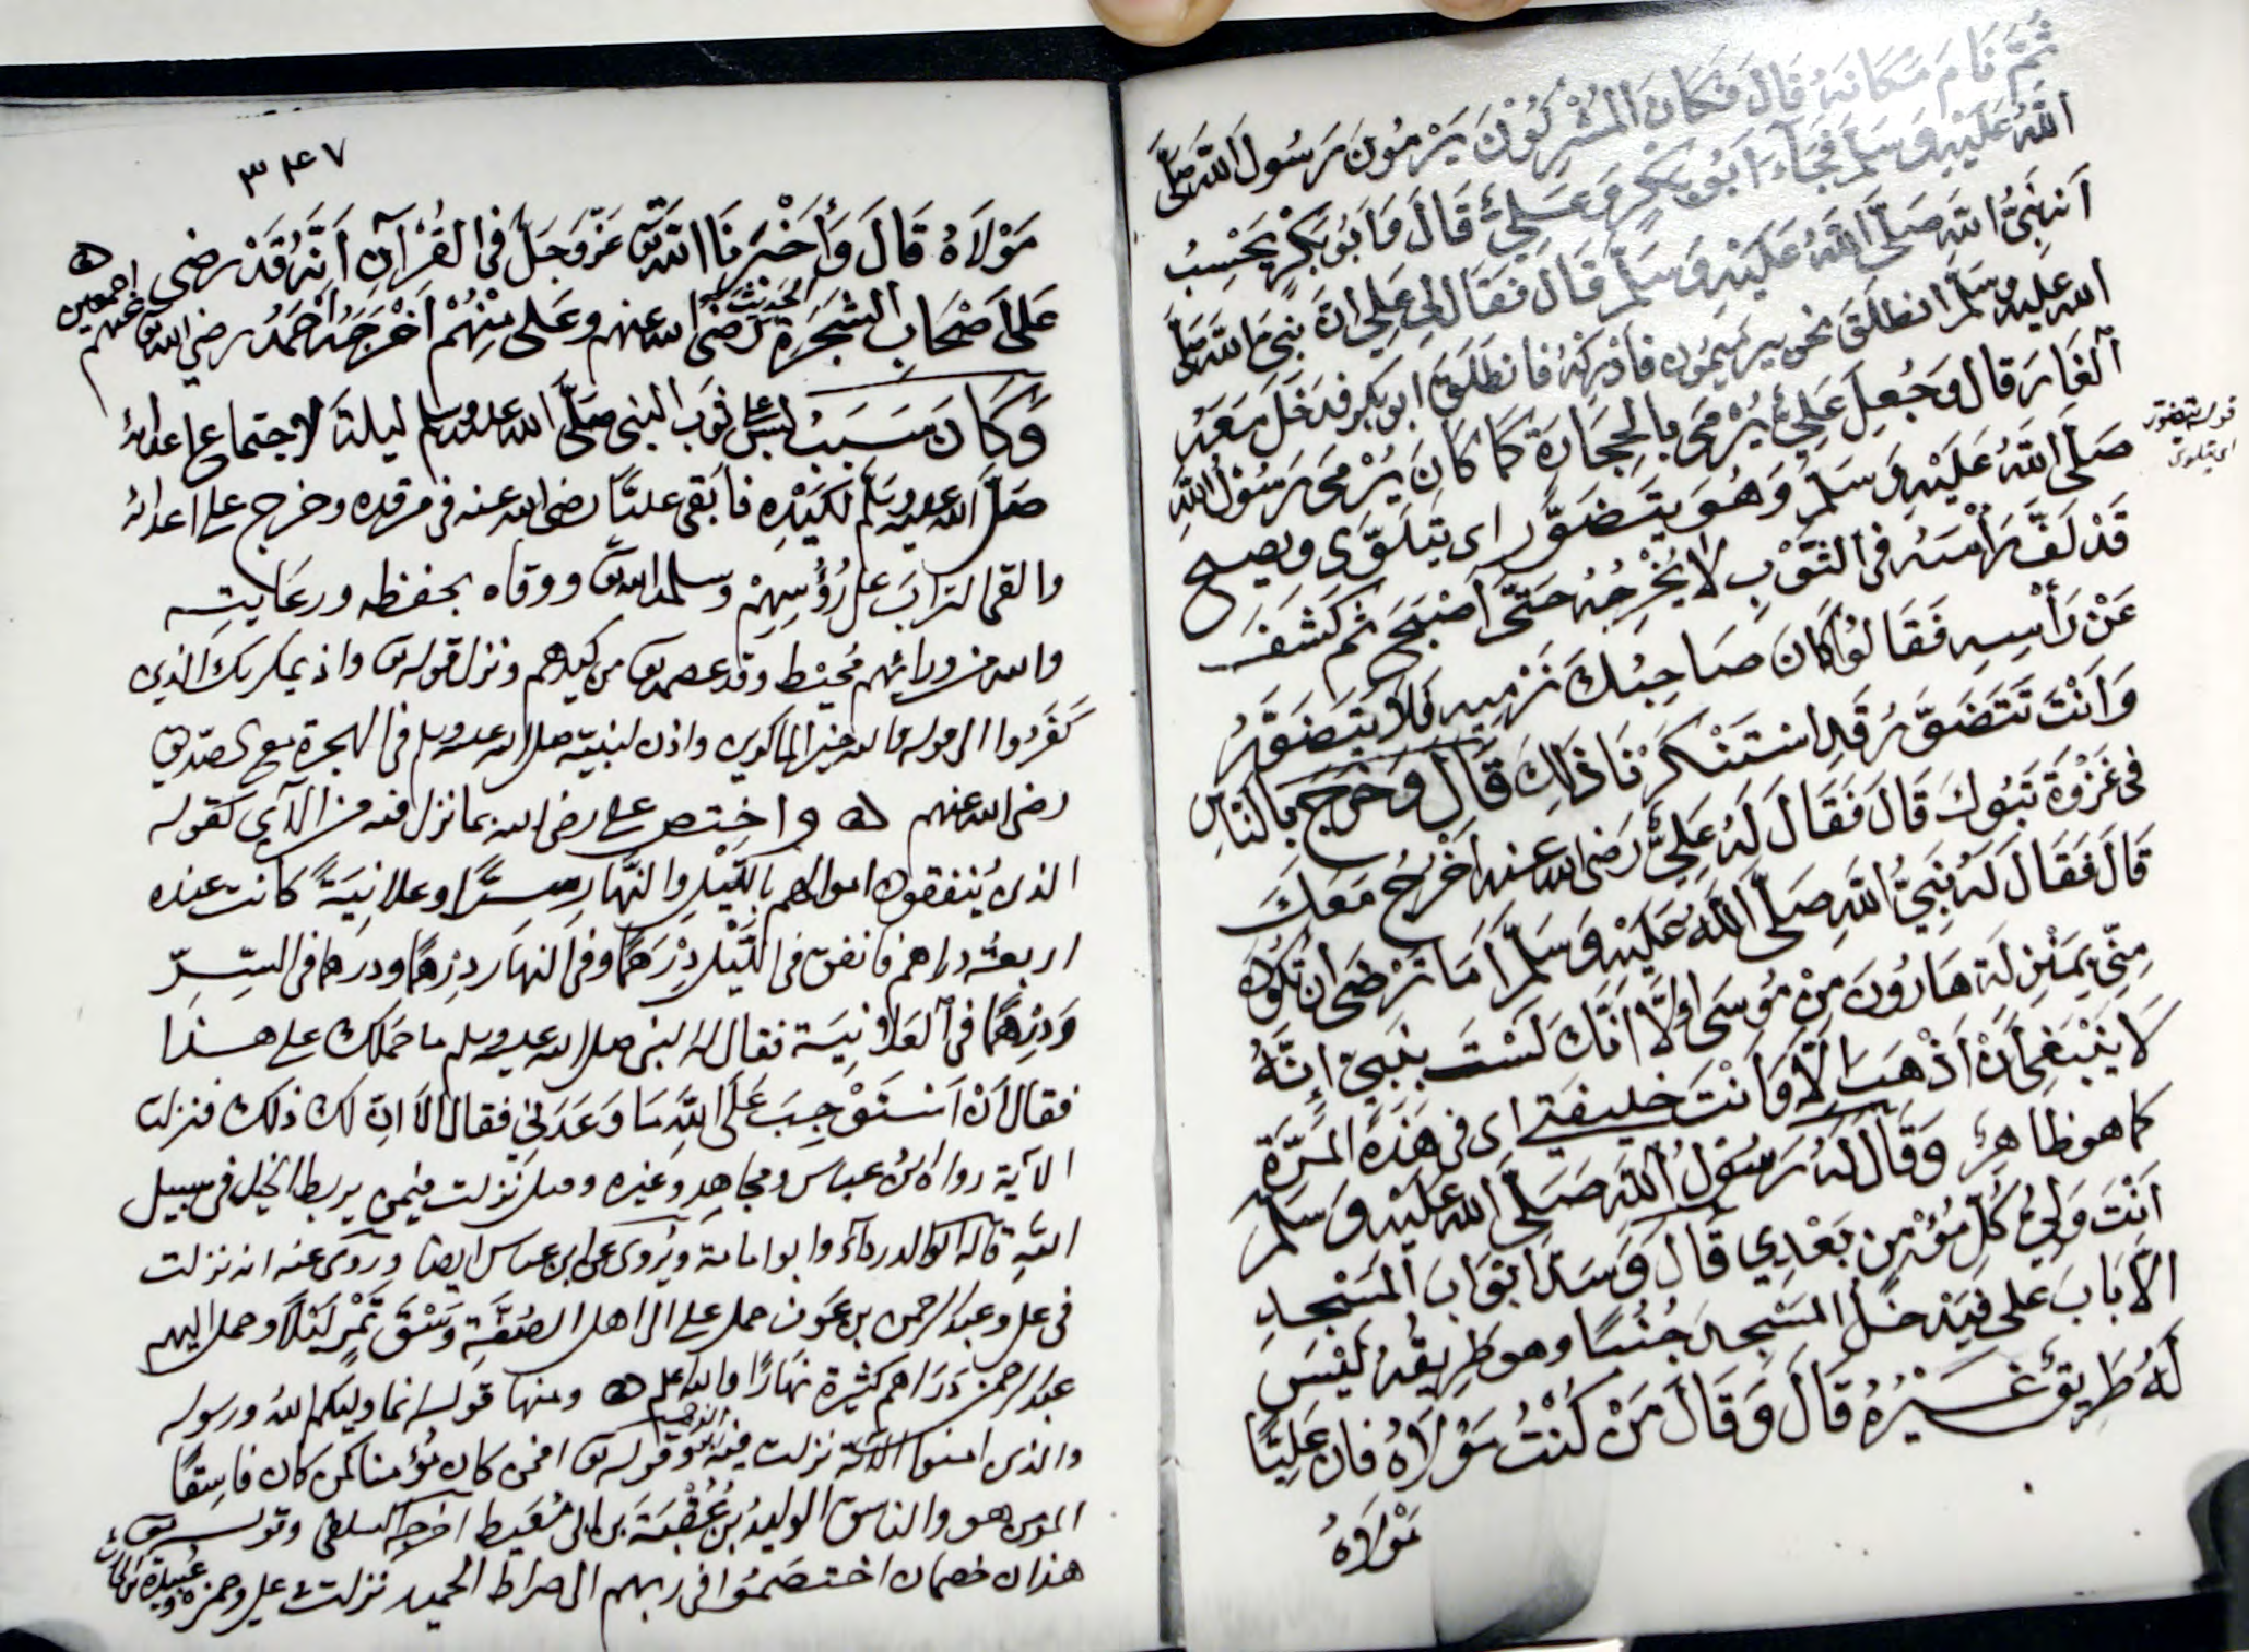 ثُمَّ نَامَ مَكَانَهُ قَالَ فَكَانَ المُشْرِكُونَ يَرْمُونَ رَسُولَ اللَّهِ صَلَّى
اللَّهُ عَلَيْهِ وَسَلَّمَ فَجَاءَ أَبُو بَكْرٍ وَعَلِيٌّ قَالَ وَأَبُو بَكْرٍ يَحْسِبُ
أَنَّهُ نَبِيُّ اللَّهِ صَلَّى اللَّهُ عَلَيْهِ وَسَلَّمَ قَالَ فَقَالَ لِي عَلِيٌّ إِنَّ نَبِيَّ اللَّهِ صَلَّى
الله عليه وسلم انطلق نحو بير ميمون فأدركه فانطلق ابو بكر فدخل مَعَهُ
الغَارَ قال وَجُعِلَ عَلِيٌّ يُرْمَى بِالحِجَارَةِ كَمَا كَانَ يُرْمَى رَسُولُ اللَّهِ
صَلَّى اللَّهُ عَلَيْهِ وَسَلَّمَ وَهُوَ يَتَضَوَّرُ اى يتلَوَّى ويصيح
قوله يتضور
اى يتلوى
قَدْ لَفَّ رَأْسَهُ فِى الثَّوْبِ لَا يُخْرِجُهُ حَتَّى أَصْبَحَ ثم كَشَفَ
عَنْ رَأْسِهِ فَقَالُوا كَانَ صَاحِبُكَ نَرْمِيهِ فَلَا يَتَضَوَّرُ
وَأَنْتَ تَتَضَوَّرُ قَدِ اسْتَنْكَرْنَا ذَلِكَ قَالَ وَخَرَجَ بِالنَّاسِ
فى غَزْوَةِ تَبُوكَ قَالَ فَقَالَ لَهُ عَلِيٌّ رَضى الله عنه أَخْرُجُ مَعَكَ
قَالَ فَقَالَ لَهُ نَبِيُّ اللَّهِ صَلَّى اللَّهُ عَلَيْهِ وَسَلَّمَ أَمَا تَرْضَى ان تكون
مِنِّى بِمَنْزِلَةِ هَارُونَ مِنْ مُوسَى إِلَّا أَنَّكَ لَسْتَ بِنَبِيٍّ إِنَّهُ
لَا يَنْبَغِى أَنْ أَذْهَبَ إِلَّا وَأَنْتَ خليفتى اى فى هَذِهِ المَرَّةِ
كما هو ظاهر وَقَالَ لَهُ رَسُولُ اللَّهِ صَلَّى اللَّهُ عَلَيْهِ وَسَلَّمَ
أَنْتَ وَلِيُّ كُلِّ مُؤْمِنٍ بَعْدِي قَالَ وَسَدَّ أَبْوَابَ المَسْجِدِ
الا بَابَ على فَيَدْخُلُ المَسْجِدَ جُنُبًا وهو طَرِيقُهُ لَيْسَ
لَهُ طَرِيقٌ غَيْرُهُ قَالَ وَقَالَ مَنْ كُنْتُ مَوْلَاهُ فَإِنَّ عَلِيًّا
مَوْلَاهُ
٣٤٧
مَوْلَاهُ قَالَ وَأَخْبَرَنَا اللَّهُ عَزَّ وَجَلَّ فى القُرْآنِ أَنَّهُ قَدْ رضى
عَلَى أَصْحَابِ الشَّجَرَةِ رَضى الله عنهم وعلى مِنْهُمْ الحديث أَخْرَجَهُ أَحْمَدُ رضى الله عنهم اجمعين
وَكَانَ سَبَبُ لبس على ثوبَ النبى صَلَّى الله عليه وسلم ليلة الاجتماع اعدائه
صَلَّى الله عليه وسلم لكيده فأبقى عليًّا رضى الله عنه فى مرقده وخرج على اعدائه
والقى التراب على رُؤُسِهِمْ وسلمه الله ووقاه بحفظه ورعايته
والله من ورائهم مُحيط وقد عصمه من كيدهم ونزل قوله واذ يمكر بك الذين
كَفَرُوا الى قوله والله خير الماكرين واذن لنبيه صلى الله عليه وسلم فى الهجرة مع الصديق
رضى الله عنهم واختص على رضى الله بما نزل فيه من الآى كقوله
الذين يُنفقون اموالهم بالليل والنهار سِرًّا وعلانيَةً كانت عنده
اربعة دراهم فانفق فى اللَّيْل دِرْهَمًا وفى النهار دِرهمًا ودرهما فى السِّرِّ
وَدِرْهَمًا فى العلانِيَة فقال له النبى صلى الله عليه وسلم ما حملك على هذا
فقال أَنْ أَسْتَوْجِبَ عَلَى اللَّهِ مَا وَعَدَنِي فقال ألا ان لك ذلك فنزلت
الآية رواه ابن عباس ومجاهد وغيره وقيل نزلت فيمن يربط الخيل فى سبيل
الله قاله ابو الدرداء وابو امامة ويُروى عن ابن عباس ايضا وروى عنه انه نزلت
فى على وعبد الرحمن بن عَوف حمل على الى اهل الصُفَّةِ وَسْقَ تَمْرٍ لَيْلًا وحمل اليهم
عبد الرحمن دَرَاهم كثيرة نَهَارًا والله اعلم ومنها قوله انما وليكم الله ورسوله
والذين امنوا الآية نزلت فيه وقوله افمن كان مُؤمنا كمن كان فاسِقًا
المؤمن هو والفاسق الوليدُ بن عُقْبَة بن ابى مُعَيط اخرجه السلفى وقوله
هذان خصمان اختصَمُوا فى ربهم الى صراط الحميد نزلت فى على وحمزة وعُبيدة بن الحارث